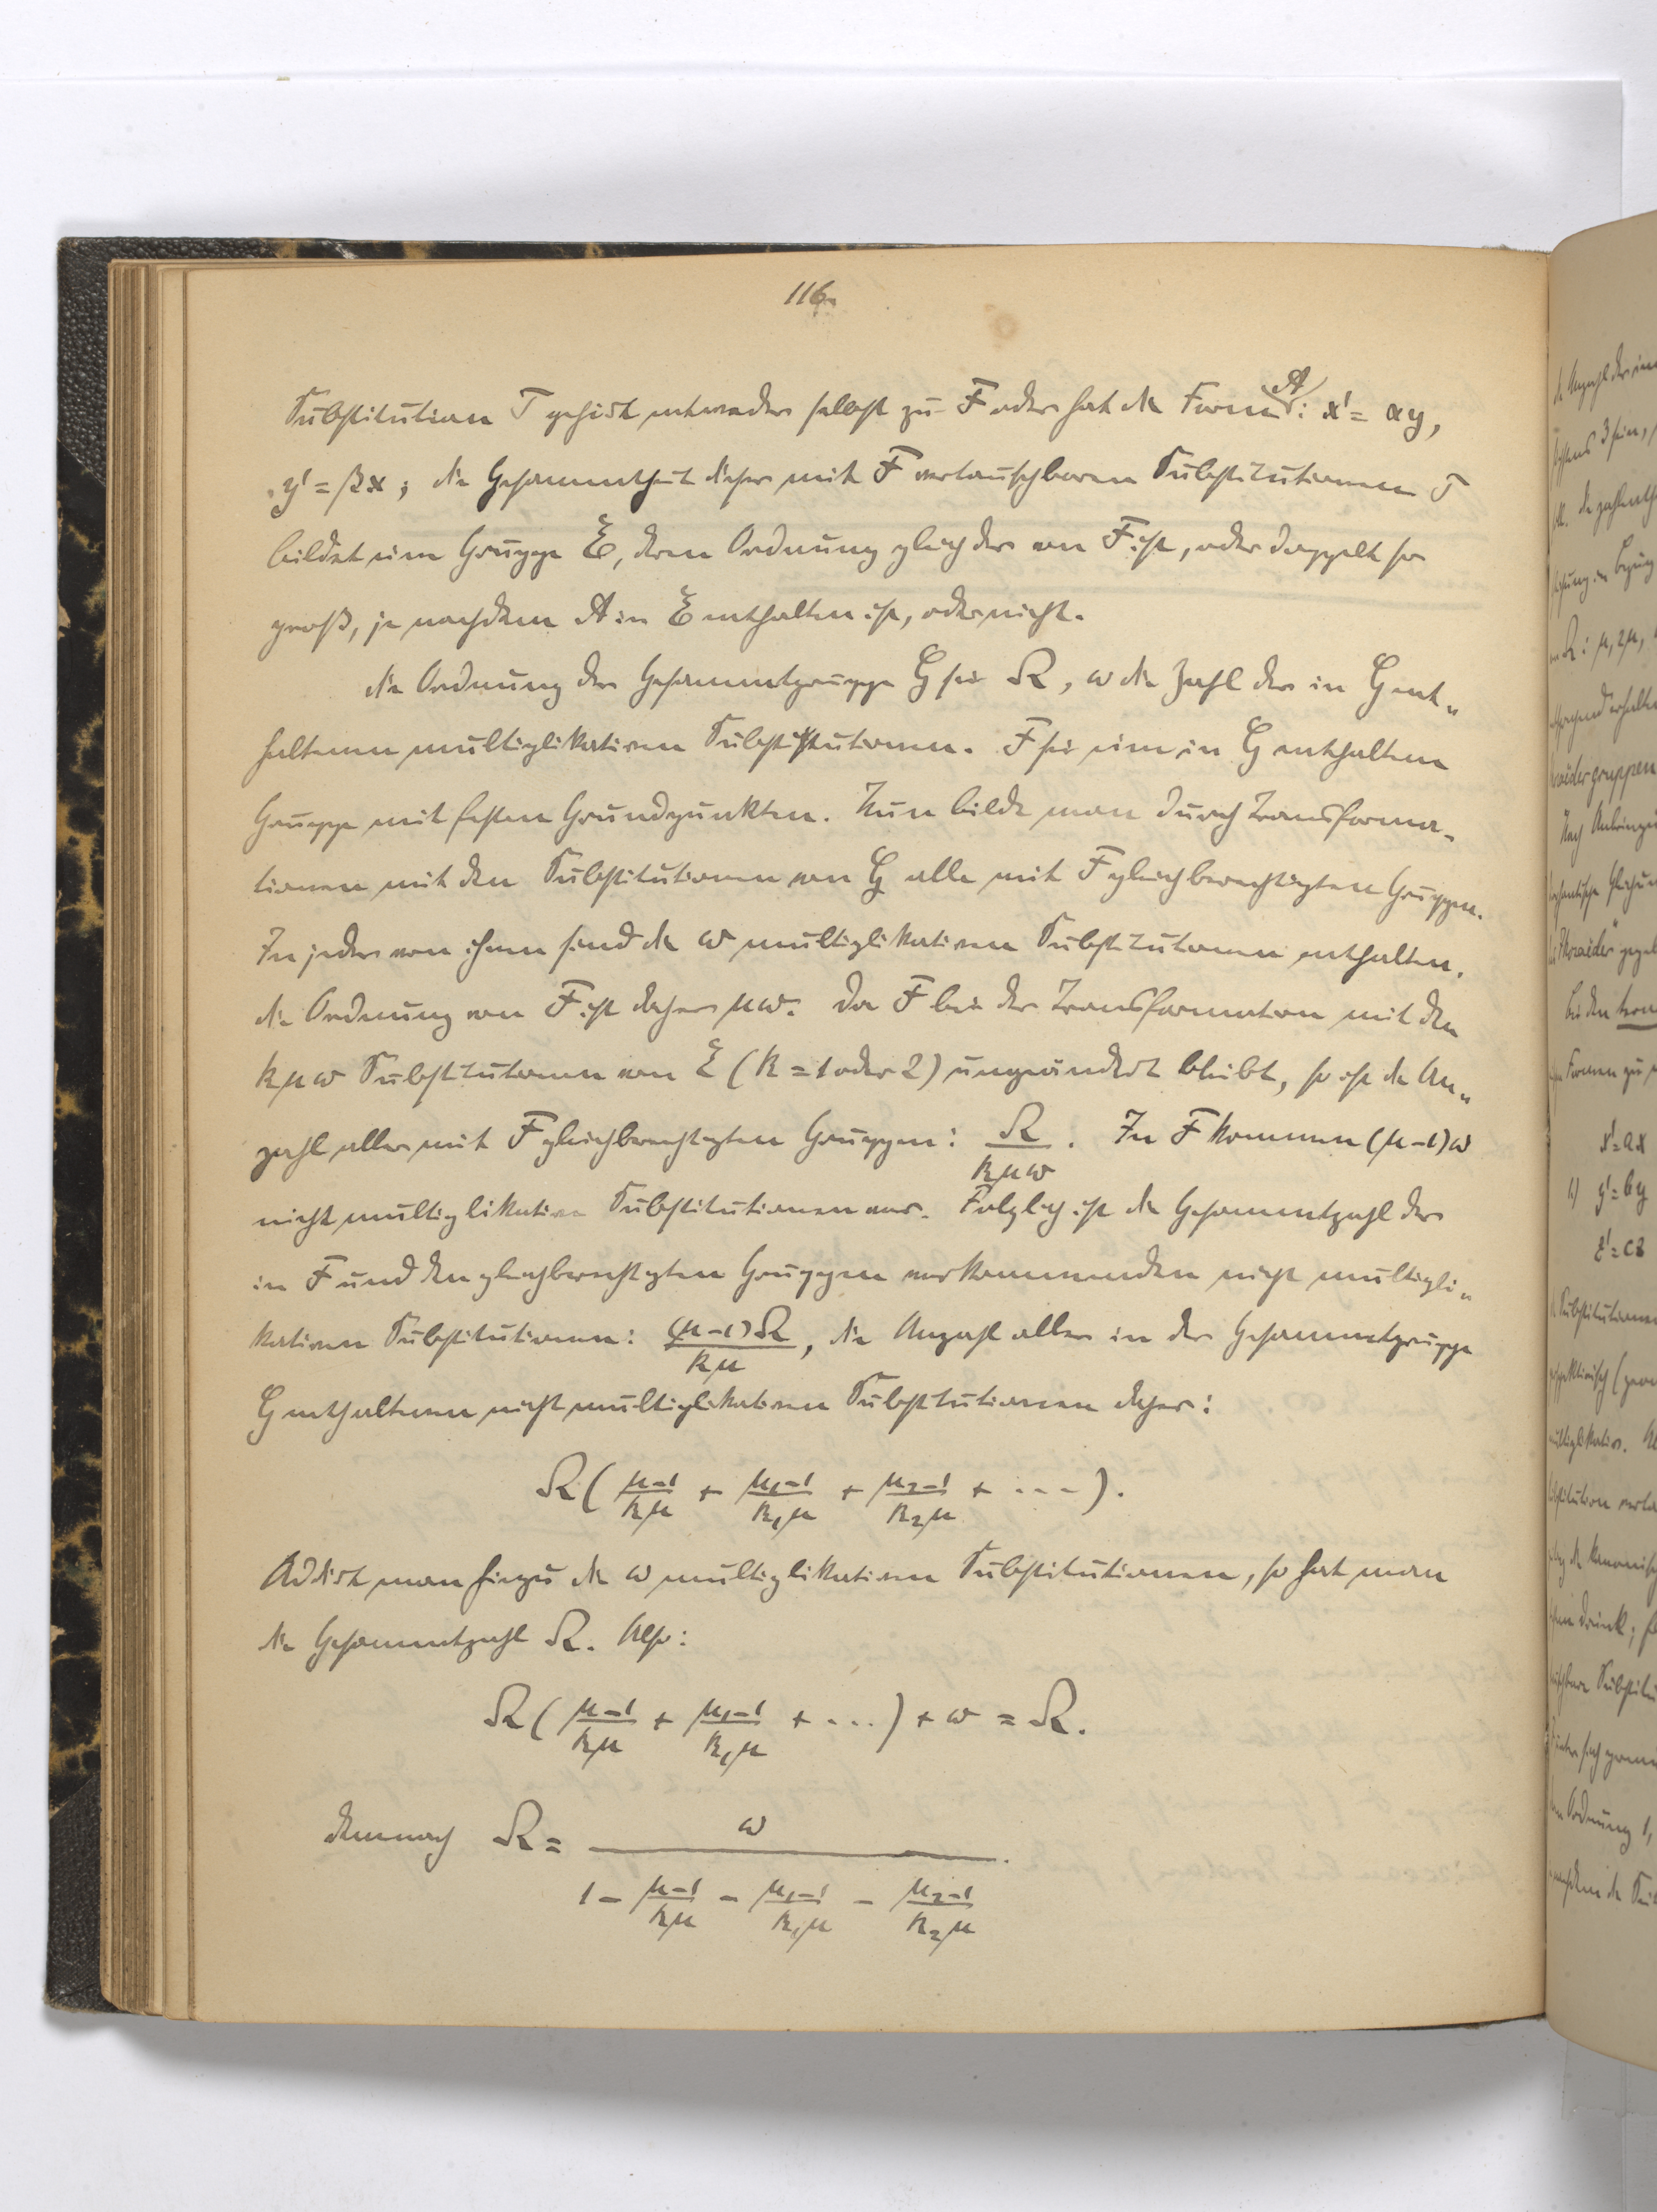 116.
Substitution T gehört entweder selbst zu F oder hat die Form A: x' = αy,
y' = βx; die Gesammtheit dieser mit F vertauschbaren Substitutionen T
bildet eine Gruppe E, deren Ordnung gleich der von F ist, oder doppelt so
groß, je nachdem A in E enthalten ist, oder nicht.
Die Ordnung der Gesammtgruppe G sei Ω, ω die Zahl der in G ent„
haltenen multiplikativen Substitutionen. F sei eine in G enthaltene
Gruppe mit festen Grundpunkten. Nun bilde man durch Transforma-
tionen mit den Substitutionen von G alle mit F gleichberechtigten Gruppen.
In jeder von ihnen sind die ω multiplikativen Substitutionen enthalten.
Die Ordnung von F ist daher μω. Da F bei der Transformation mit den
kμω Substitutionen von E (k = 1 oder 2) ungeändert bleibt, so ist die An„
zahl aller mit F gleichberechtigten Gruppen: Ω/kμω. In F kommen (μ-1)ω
nicht multiplikative Substitutionen vor. Folglich ist die Gesammtzahl der
in F und den gleichberechtigten Gruppen vorkommenden nicht multipli„
kativen Substitutionen: (μ-1)Ω/kμ, die Anzahl aller in der Gesammtgruppe
G enthaltenen nicht multiplikativen Substitutionen daher:
Ω ( μ-1/kμ + μ₁-1/k₁μ + μ₂-1/k₂μ + ... ).
Addirt man hinzu die ω multiplikativen Substitutionen, so hat man
die Gesammtzahl Ω. Also:
Ω ( μ-1/kμ + μ₁-1/k₁μ + ... ) + ω = Ω.
Demnach Ω = ω / 1 - μ-1/kμ - μ₁-1/k₁μ - μ₂-1/k₂μ.
x' = ax
y' = by
z' = cz